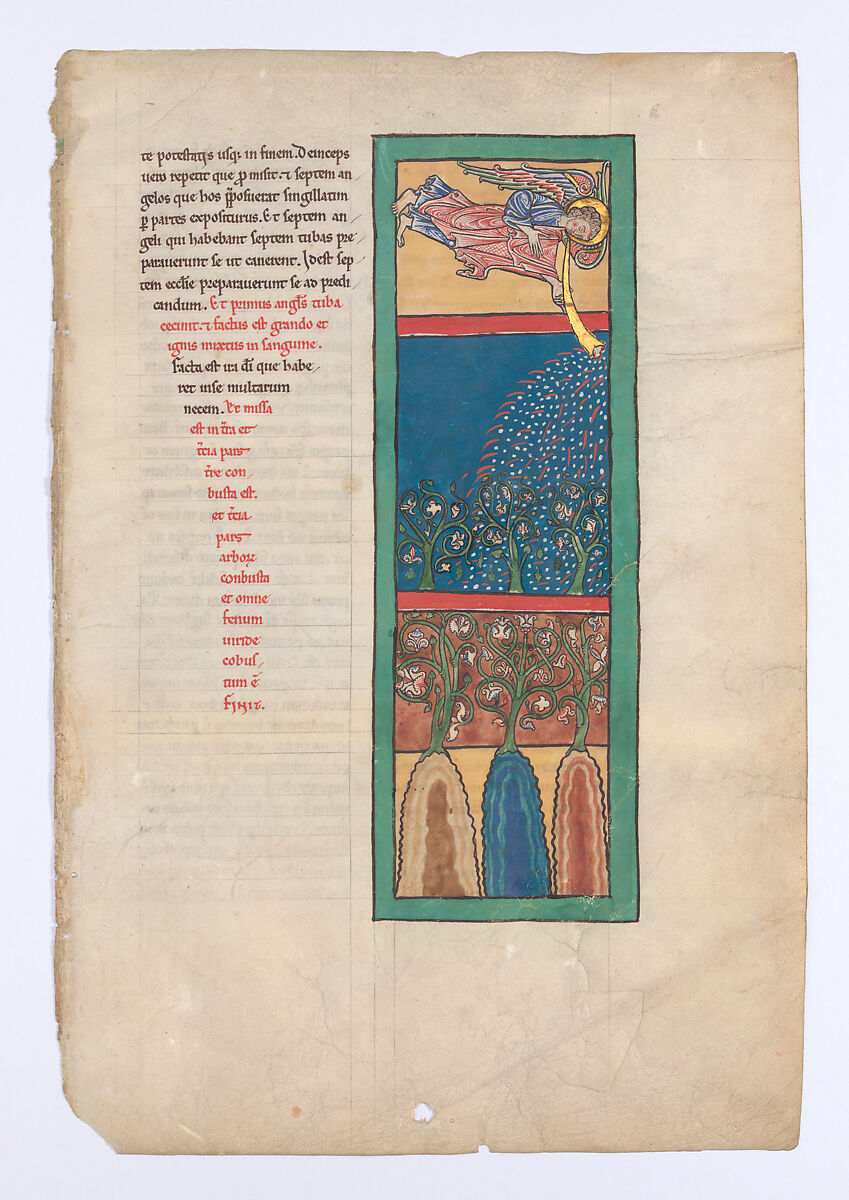 te potestatis usq; in finem. Deinceps
uero repetit que promisit. & septem an
gelos que hos pposuerat singillatim
p partes expositurus. Et septem an
geli qui habebant septem tubas pre
parauerunt se ut canerent. Idest sep
tem eccłie preparauerunt se ad predi
candum. Et primus angłs tuba
cecinit. & factus est grando et
ignis mixtus in sanguine.
facta est ira dī que habe
ret inse multarum
necem. Et missa
est in tr̄a et
tc̄ia pars
tr̄re con
busta est.
et tc̄ia
pars
arborꝝ
conbusta
et omne
fenum
uiride
cobus
tum ē
FINIT.